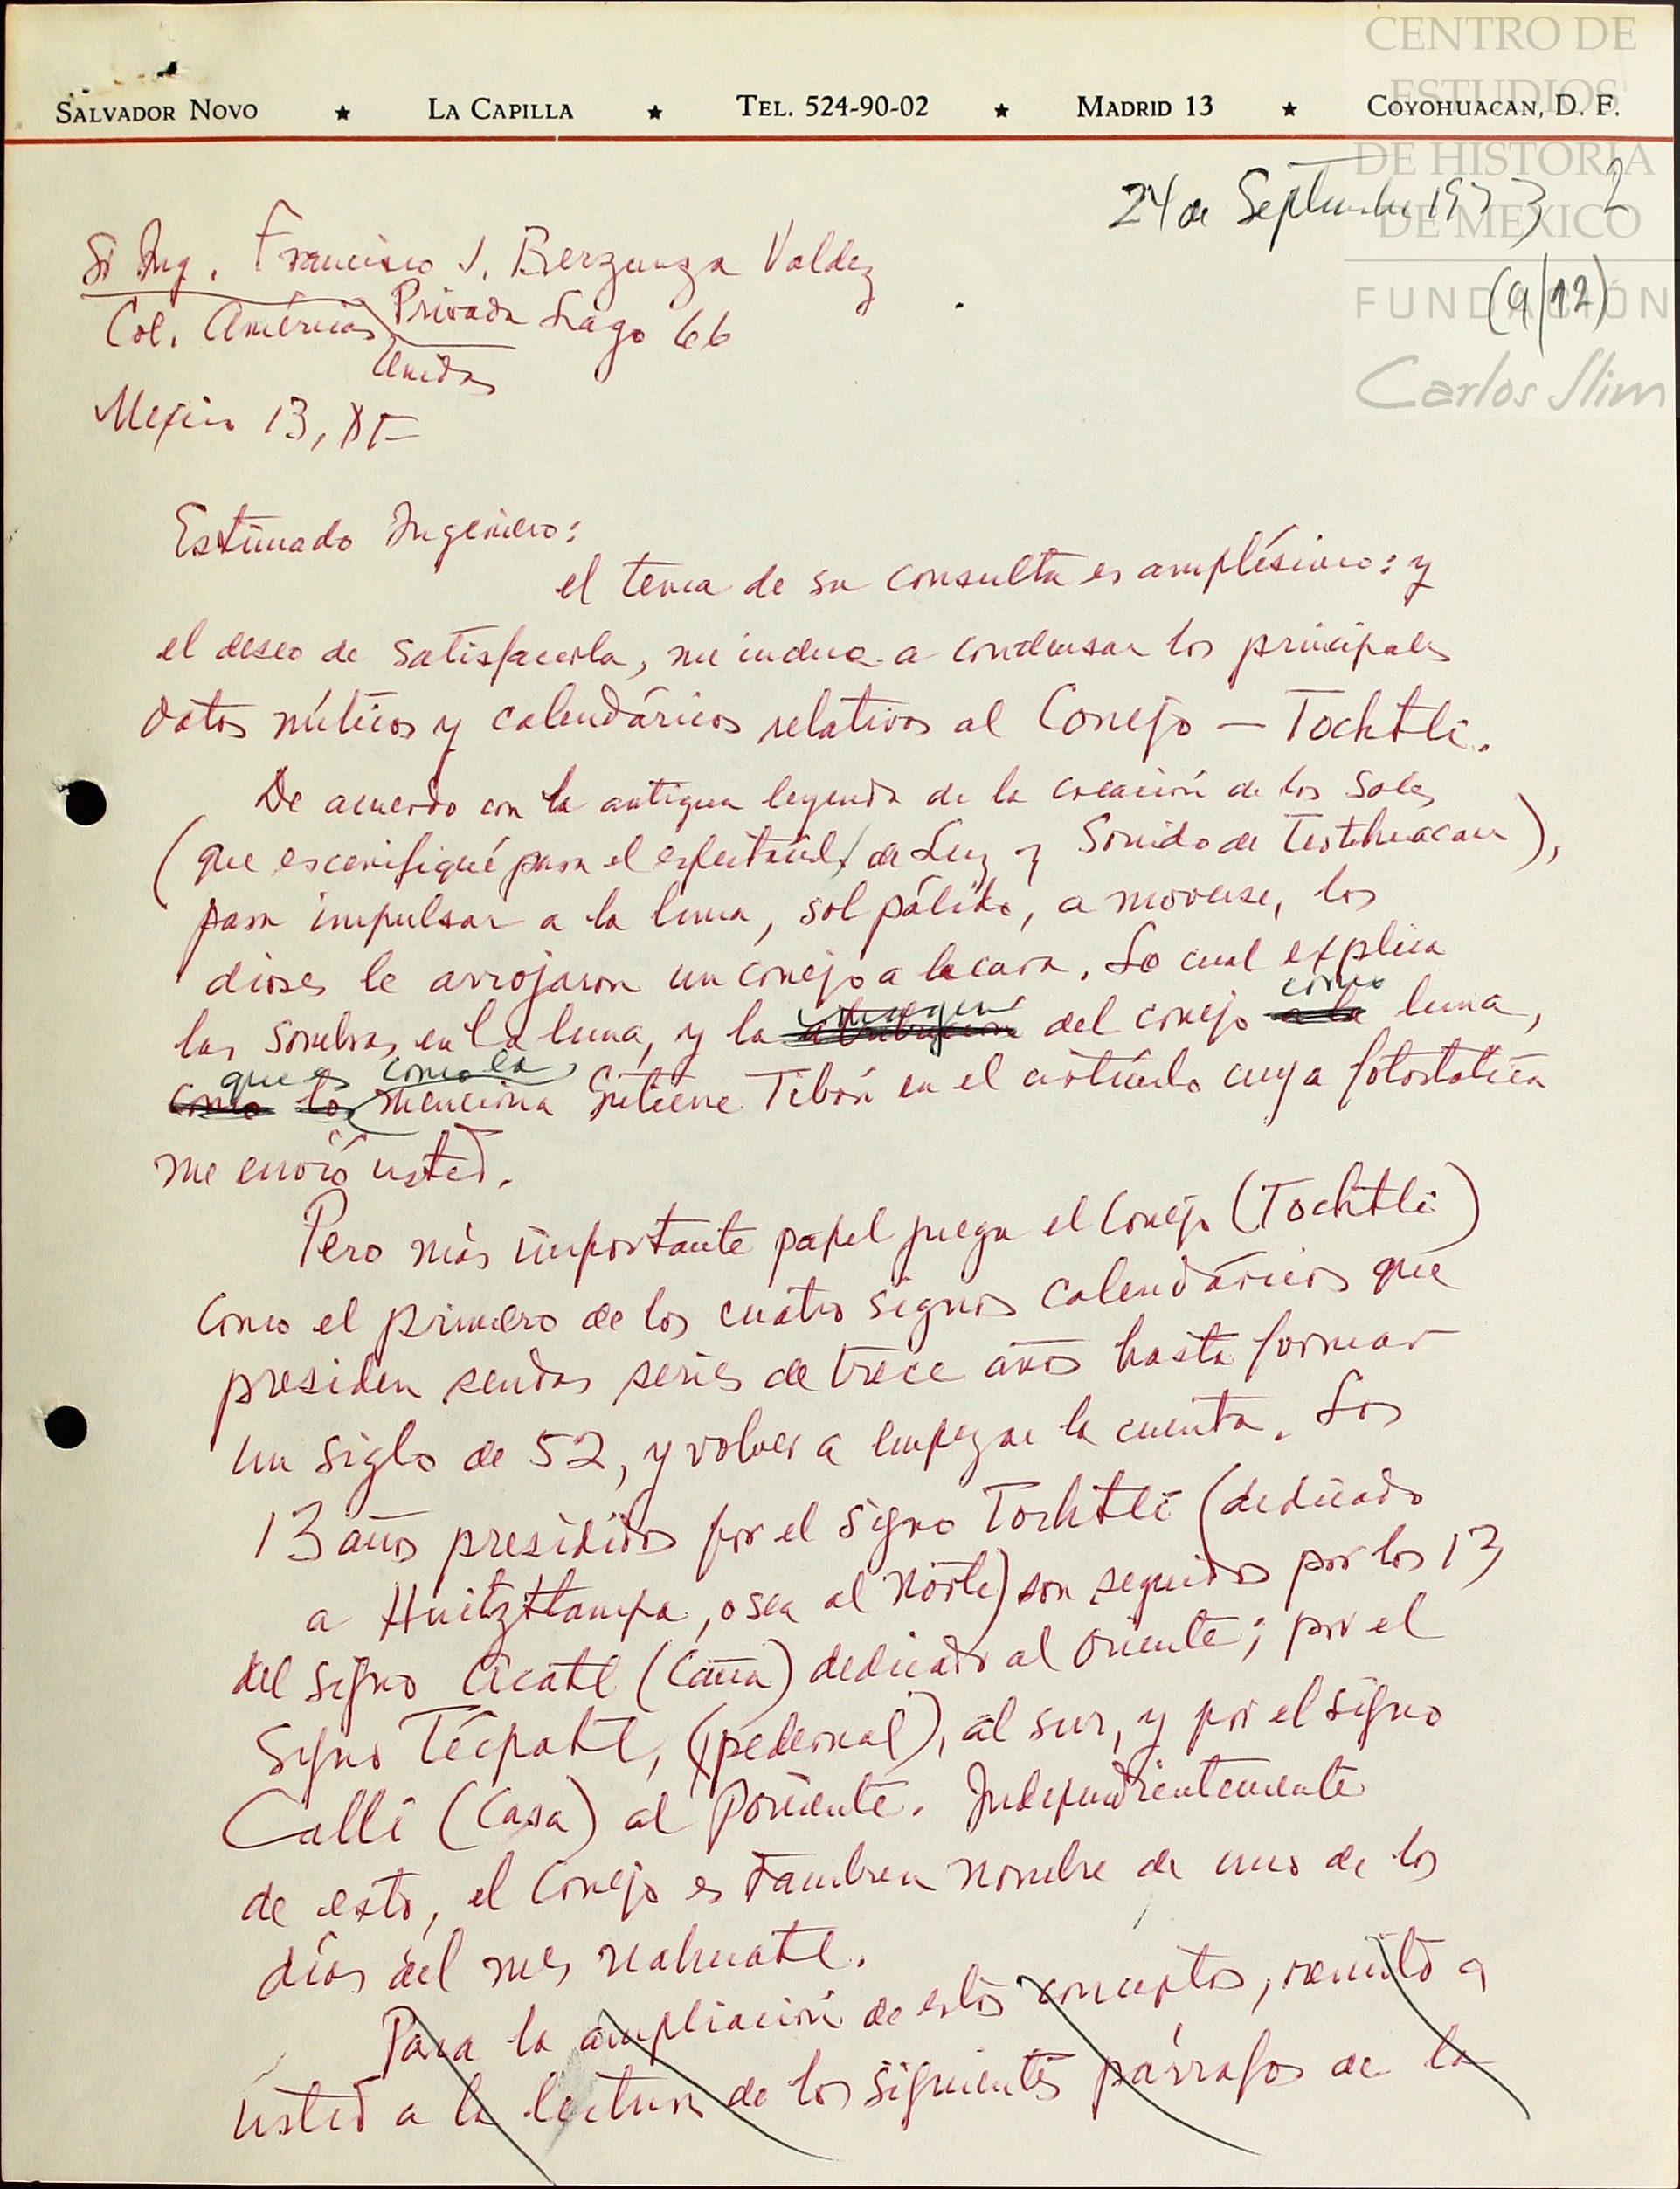 SALVADOR NOVO ★ LA CAPILLA ★ TEL. 524-90-02 ★ MADRID 13 ★ COYOHUACAN, D. F.
CENTRO DE
ESTUDIOS
DE HISTORIA
DE MEXICO
FUNDACIÓN
Carlos Slim
24 de Septiembre 1973 2
(9/12)
Sr Ing. Francisco J. Berzunza Valdez
Privada Lago 66
Col. Américas
Unidas
México 13, DF
Estimado Ingeniero:
el tema de su consulta es amplísimo: y
el deseo de satisfacerla, me induce a condensar los principales
datos míticos y calendáricos relativos al Conejo — Tochtli.
De acuerdo con la antigua leyenda de la creación de los soles
(que escenifiqué para el espectáculo de Luz y Sonido de Teotihuacan),
para impulsar a la luna, sol pálido, a moverse, los
dioses le arrojaron un conejo a la cara. Lo cual explica
las sombras en la luna, y la imagen del conejo como luna,
que es como la menciona Gutierre Tibón en el artículo cuya fotostática
me envió usted.
Pero más importante papel juega el Conejo (Tochtli)
como el primero de los cuatro signos calendáricos que
presiden sendas series de trece años hasta formar
un siglo de 52, y volver a empezar la cuenta. Los
13 años presididos por el signo Tochtli (dedicado
a Huitztlampa, o sea al Norte) son seguidos por los 13
del signo Acatl (Caña) dedicado al Oriente; por el
signo Técpatl, (pedernal), al sur, y por el signo
Calli (Casa) al Poniente. Independientemente
de esto, el Conejo es tambien nombre de uno de los
días del mes nahuatl.
Para la ampliación de estos conceptos, remito a
usted a la lectura de los siguientes párrafos de la